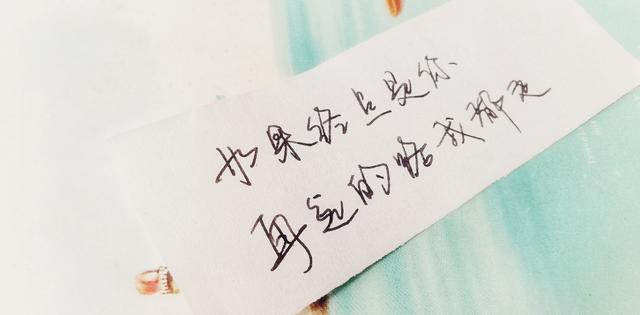 如果终点是你
再远的路我都走